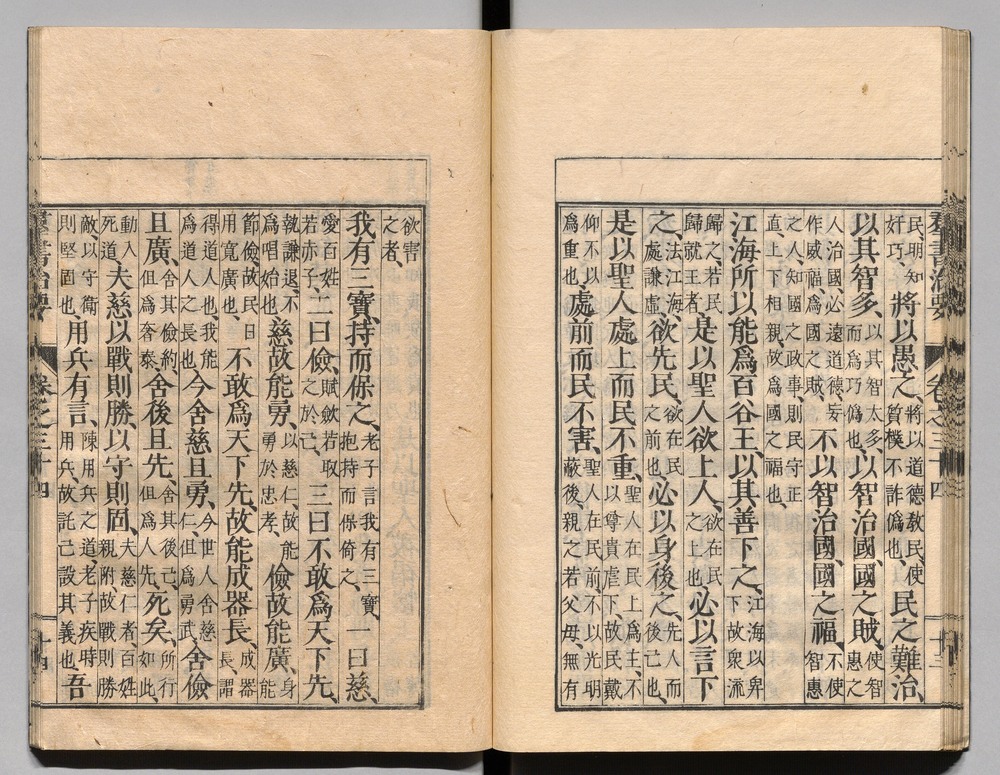 羣書治要 卷之三十四 十三
民、明知奸巧、將以愚之、將以道德教民使質樸不詐僞也、民之難治、
以其智多、以其智太多、而爲巧僞也、以智治國、國之賊、使智惠之
人治國必遠道德妄作威福、爲國之賊、不以智治國、國之福、不使智惠
之人知國之政事、則民守正直、上下相親、故爲國之福也、
江海所以能爲百谷王、以其善下之、江海以卑下故衆流
歸之、若民歸就王者、是以聖人欲上人、欲在民之上也、必以言下
之、法江海、處謙虛、欲先民、欲在民之前也、必以身後之、先人而後己也、
是以聖人處上而民不重、聖人在民上爲主、不以尊貴虐下、故民戴
仰不以爲重也、處前而民不害、聖人在民前、不以光明蔽後、親之若父母、無有
欲害之者、
我有三寶、持而保之、老子言我有三寶、抱持而保倚之、一曰慈、
愛百姓若赤子、二曰儉、賦斂若取之於己、三曰不敢爲天下先、
執謙退、不爲唱始也、慈故能勇、以慈仁、故能勇於忠孝、儉故能廣、身能
節儉、故民日用寬廣也、不敢爲天下先、故能成器長、成器長、謂
得道人也、我能爲道人之長也、今舍慈且勇、今世人舍慈仁、但爲勇武、舍儉
且廣、舍其儉約、但爲奢泰、舍後且先、舍其後己、但爲人先、死矣、所行如此、
動入死道、夫慈以戰則勝、以守則固、夫慈仁者、百姓親附、故戰則勝
敵、以守衛則堅固也、用兵有言、陳用兵之道、老子疾時用兵、故託己設其義也、吾
羣書治要 卷之三十四 十四